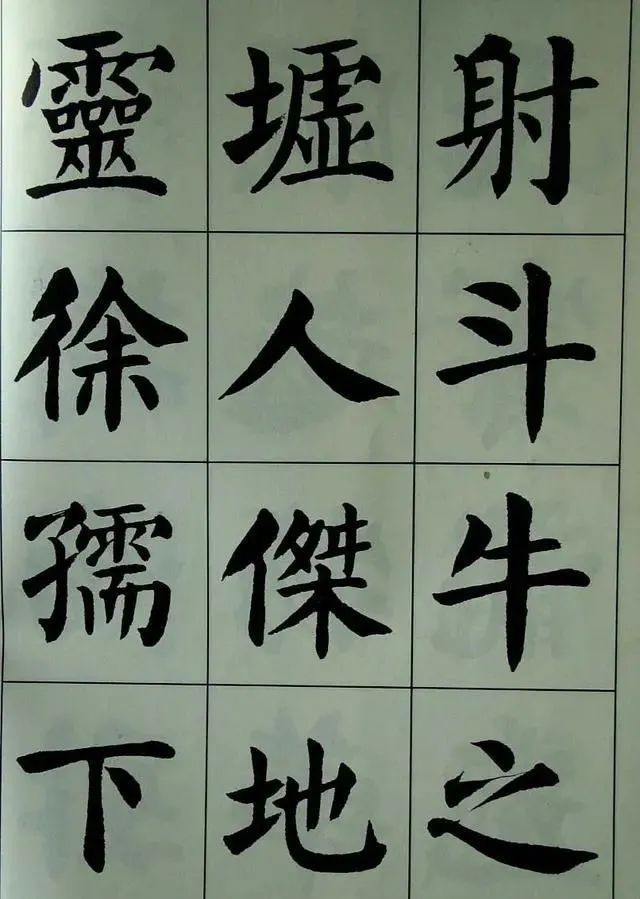 射斗牛之
墟人傑地
靈徐孺下